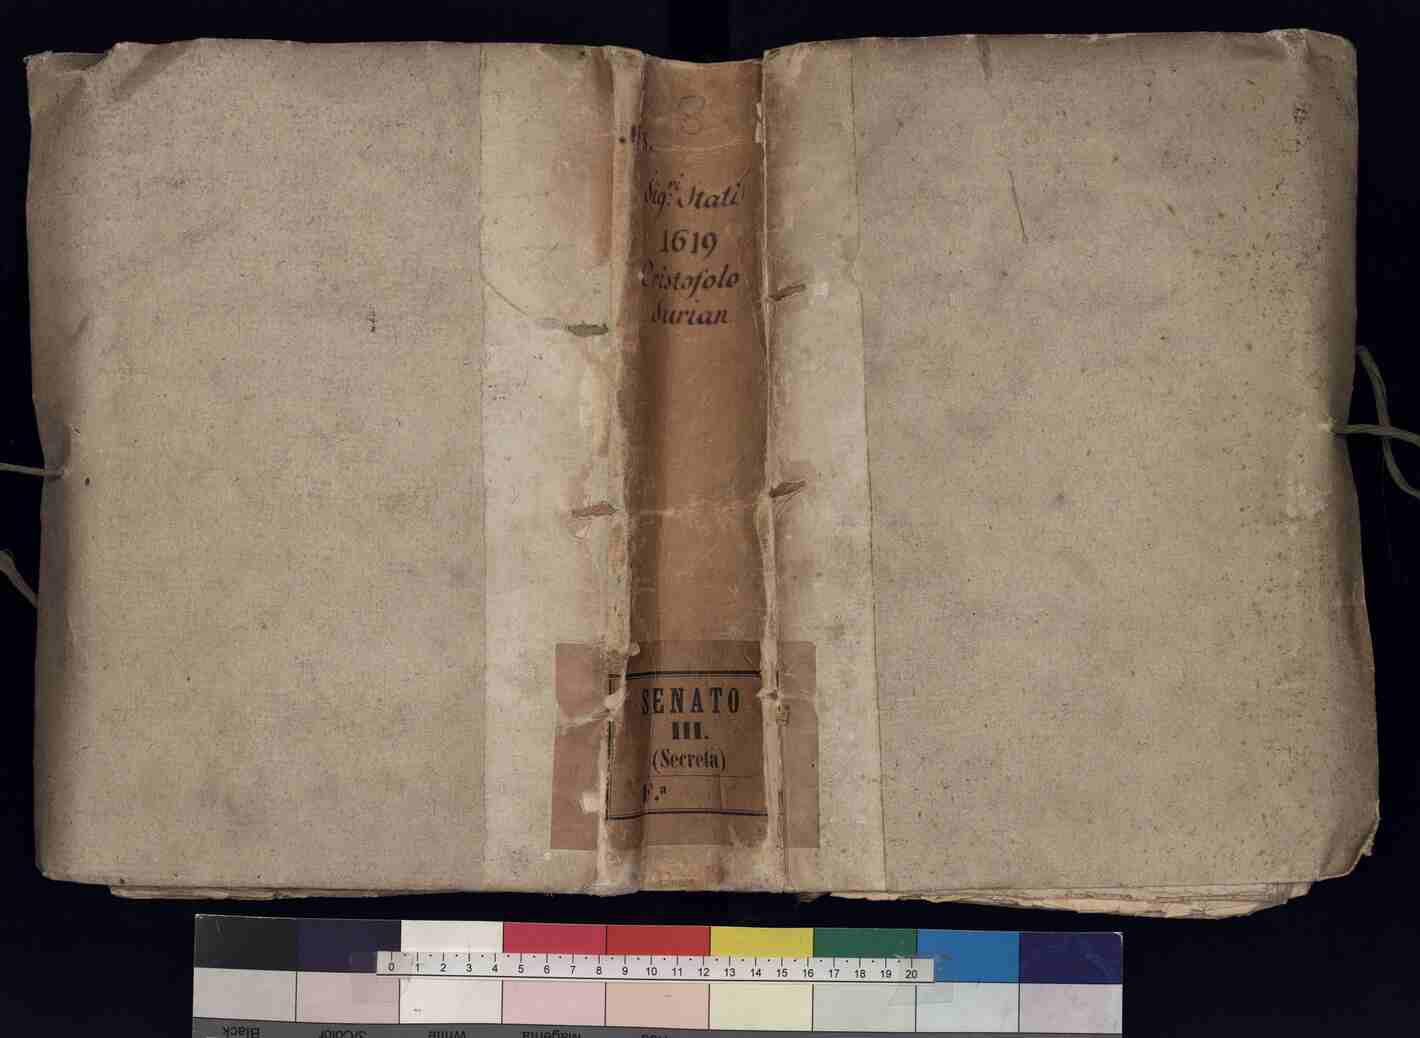 8
Sig.ri Stati
1619
Cristofolo
Surian
SENATO
III.
(Secreta)
F.a
0 1 2 3 4 5 6 7 8 9 10 11 12 13 14 15 16 17 18 19 20
Black 3/Color White Magenta